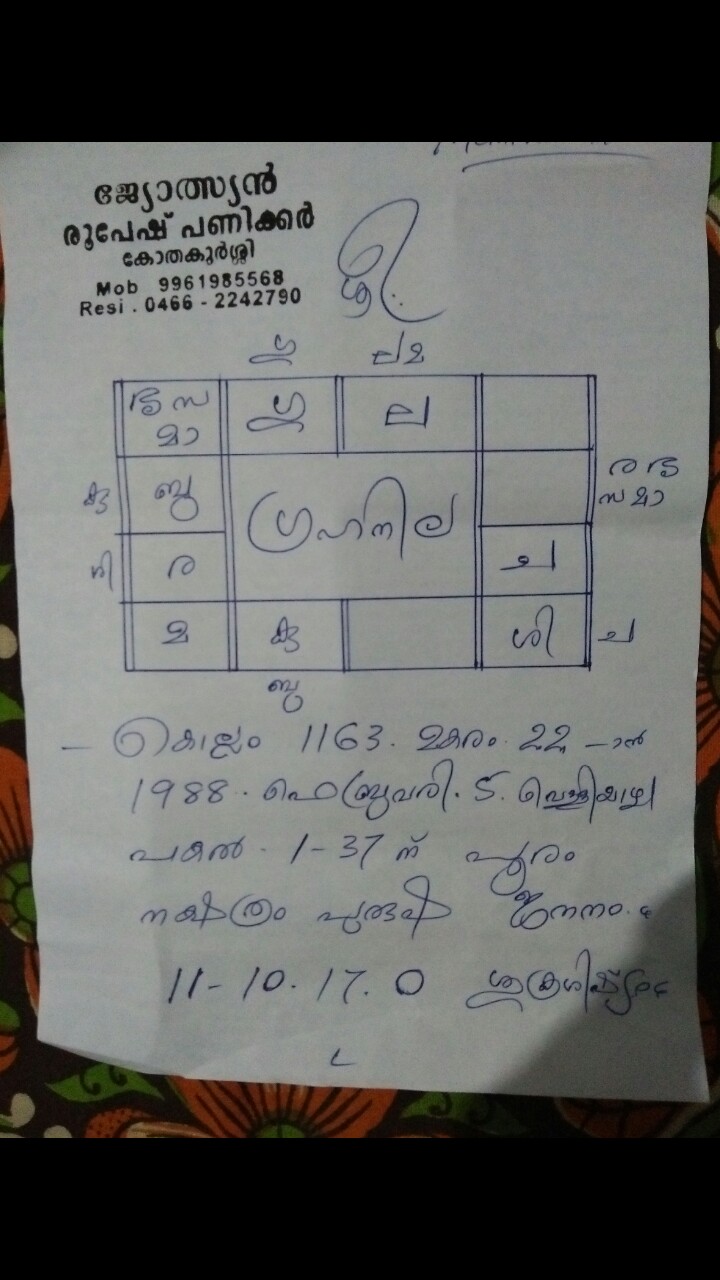 ജ്യോത്സ്യൻ
രൂപേഷ് പണിക്കർ
കോതകുർശ്ശി
Mob 9961985568
Resi . 0466 - 2242790
ശ്രീ
ല മ
സ മാ
ല
കു ബു
ര ഗു സ മാ
ഗ്രഹനില
ര
ച
മ കു ശി ച
ബു
- കൊല്ലം 1163. മകരം 22 -ാൻ
1988. ഫെബ്രുവരി. 5. വെള്ളിയാഴ്ച
പകൽ. 1-37 ന് പൂരം
നക്ഷത്രം പുരുഷ ജനനം.
11-10.17.0 ശുക്രശിഷ്ടം